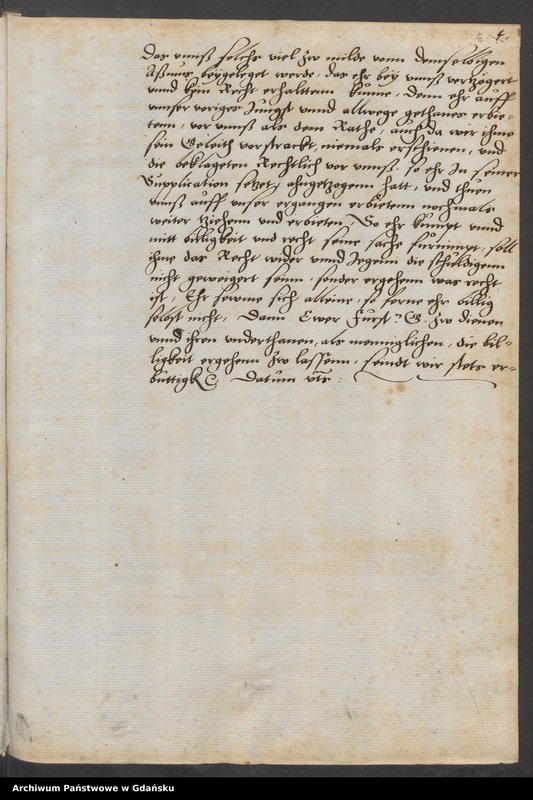 6 4.
das vnnß solchs viel zw milde vonn demselbigen
Aßmus beygeleget werde, das ehr bey vnnß vertzogert
vnnd kein Recht erhalttenn kunne, Denn ehr auff
vnnser voriges Jungst vnnd allwege gethanes erbie-
tenn, vor vnnß als dem Rathe, auch da wer ihme
sein Geleith vorstrackt, niemals erschienen, vnnd
die beklageten Rechtlich vor vnnß, so ehr In seiner
Supplication setzet, ahngetzogenn hatt, vnd ihnen
vnnß auff vnser ergangen erbietenn nochmals
weiter tziehenn vnd erbieten, So ehr kumpt vnnd
mitt billigkeit vnd recht seine sache furnimpt, soll
ihme das Recht wider vnnd Jegenn die schuldigenn
nicht geweigert seinn, sonder ergehenn was recht
ist, Ehr seume sich alleine, so ferne ehr billig
selbst nicht, Dann Ewer Furstl: G. zw dienen
vnnd ihren vnderthanen, als menniglichen, die bil-
ligkeit ergehenn zw lassenn, seindt wir stets er-
büttigk &c. Datum vts:
Archiwum Państwowe w Gdańsku